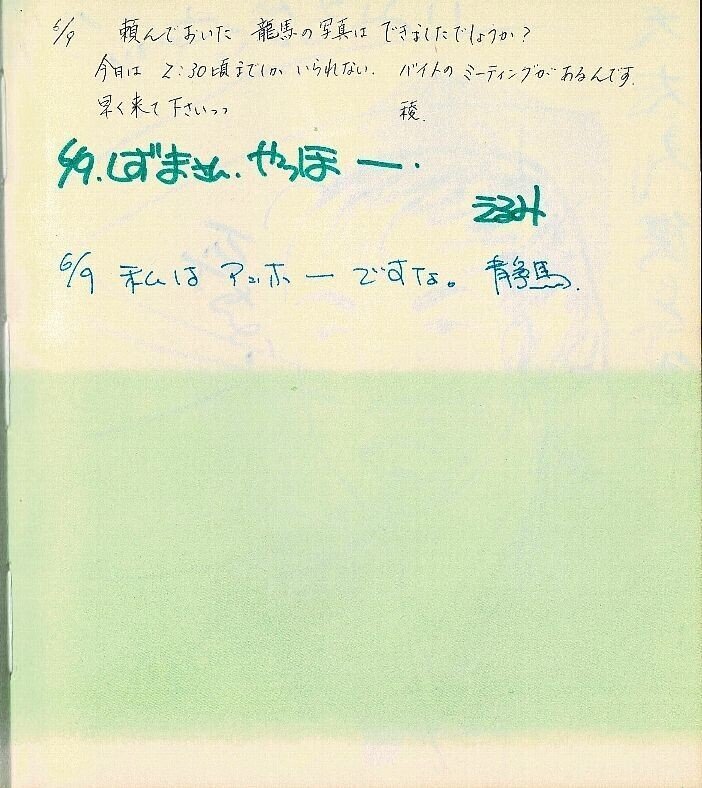 6/9 頼んでおいた 龍馬の写真は できましたでしょうか?
今日は 2:30頃までしか いられない. バイトの ミーティングが あるんです.
早く来て下さいっっ 稜.
6/9. しずまさん. やっほー.
えるみ
6/9 私は アッホーですな。 静馬.